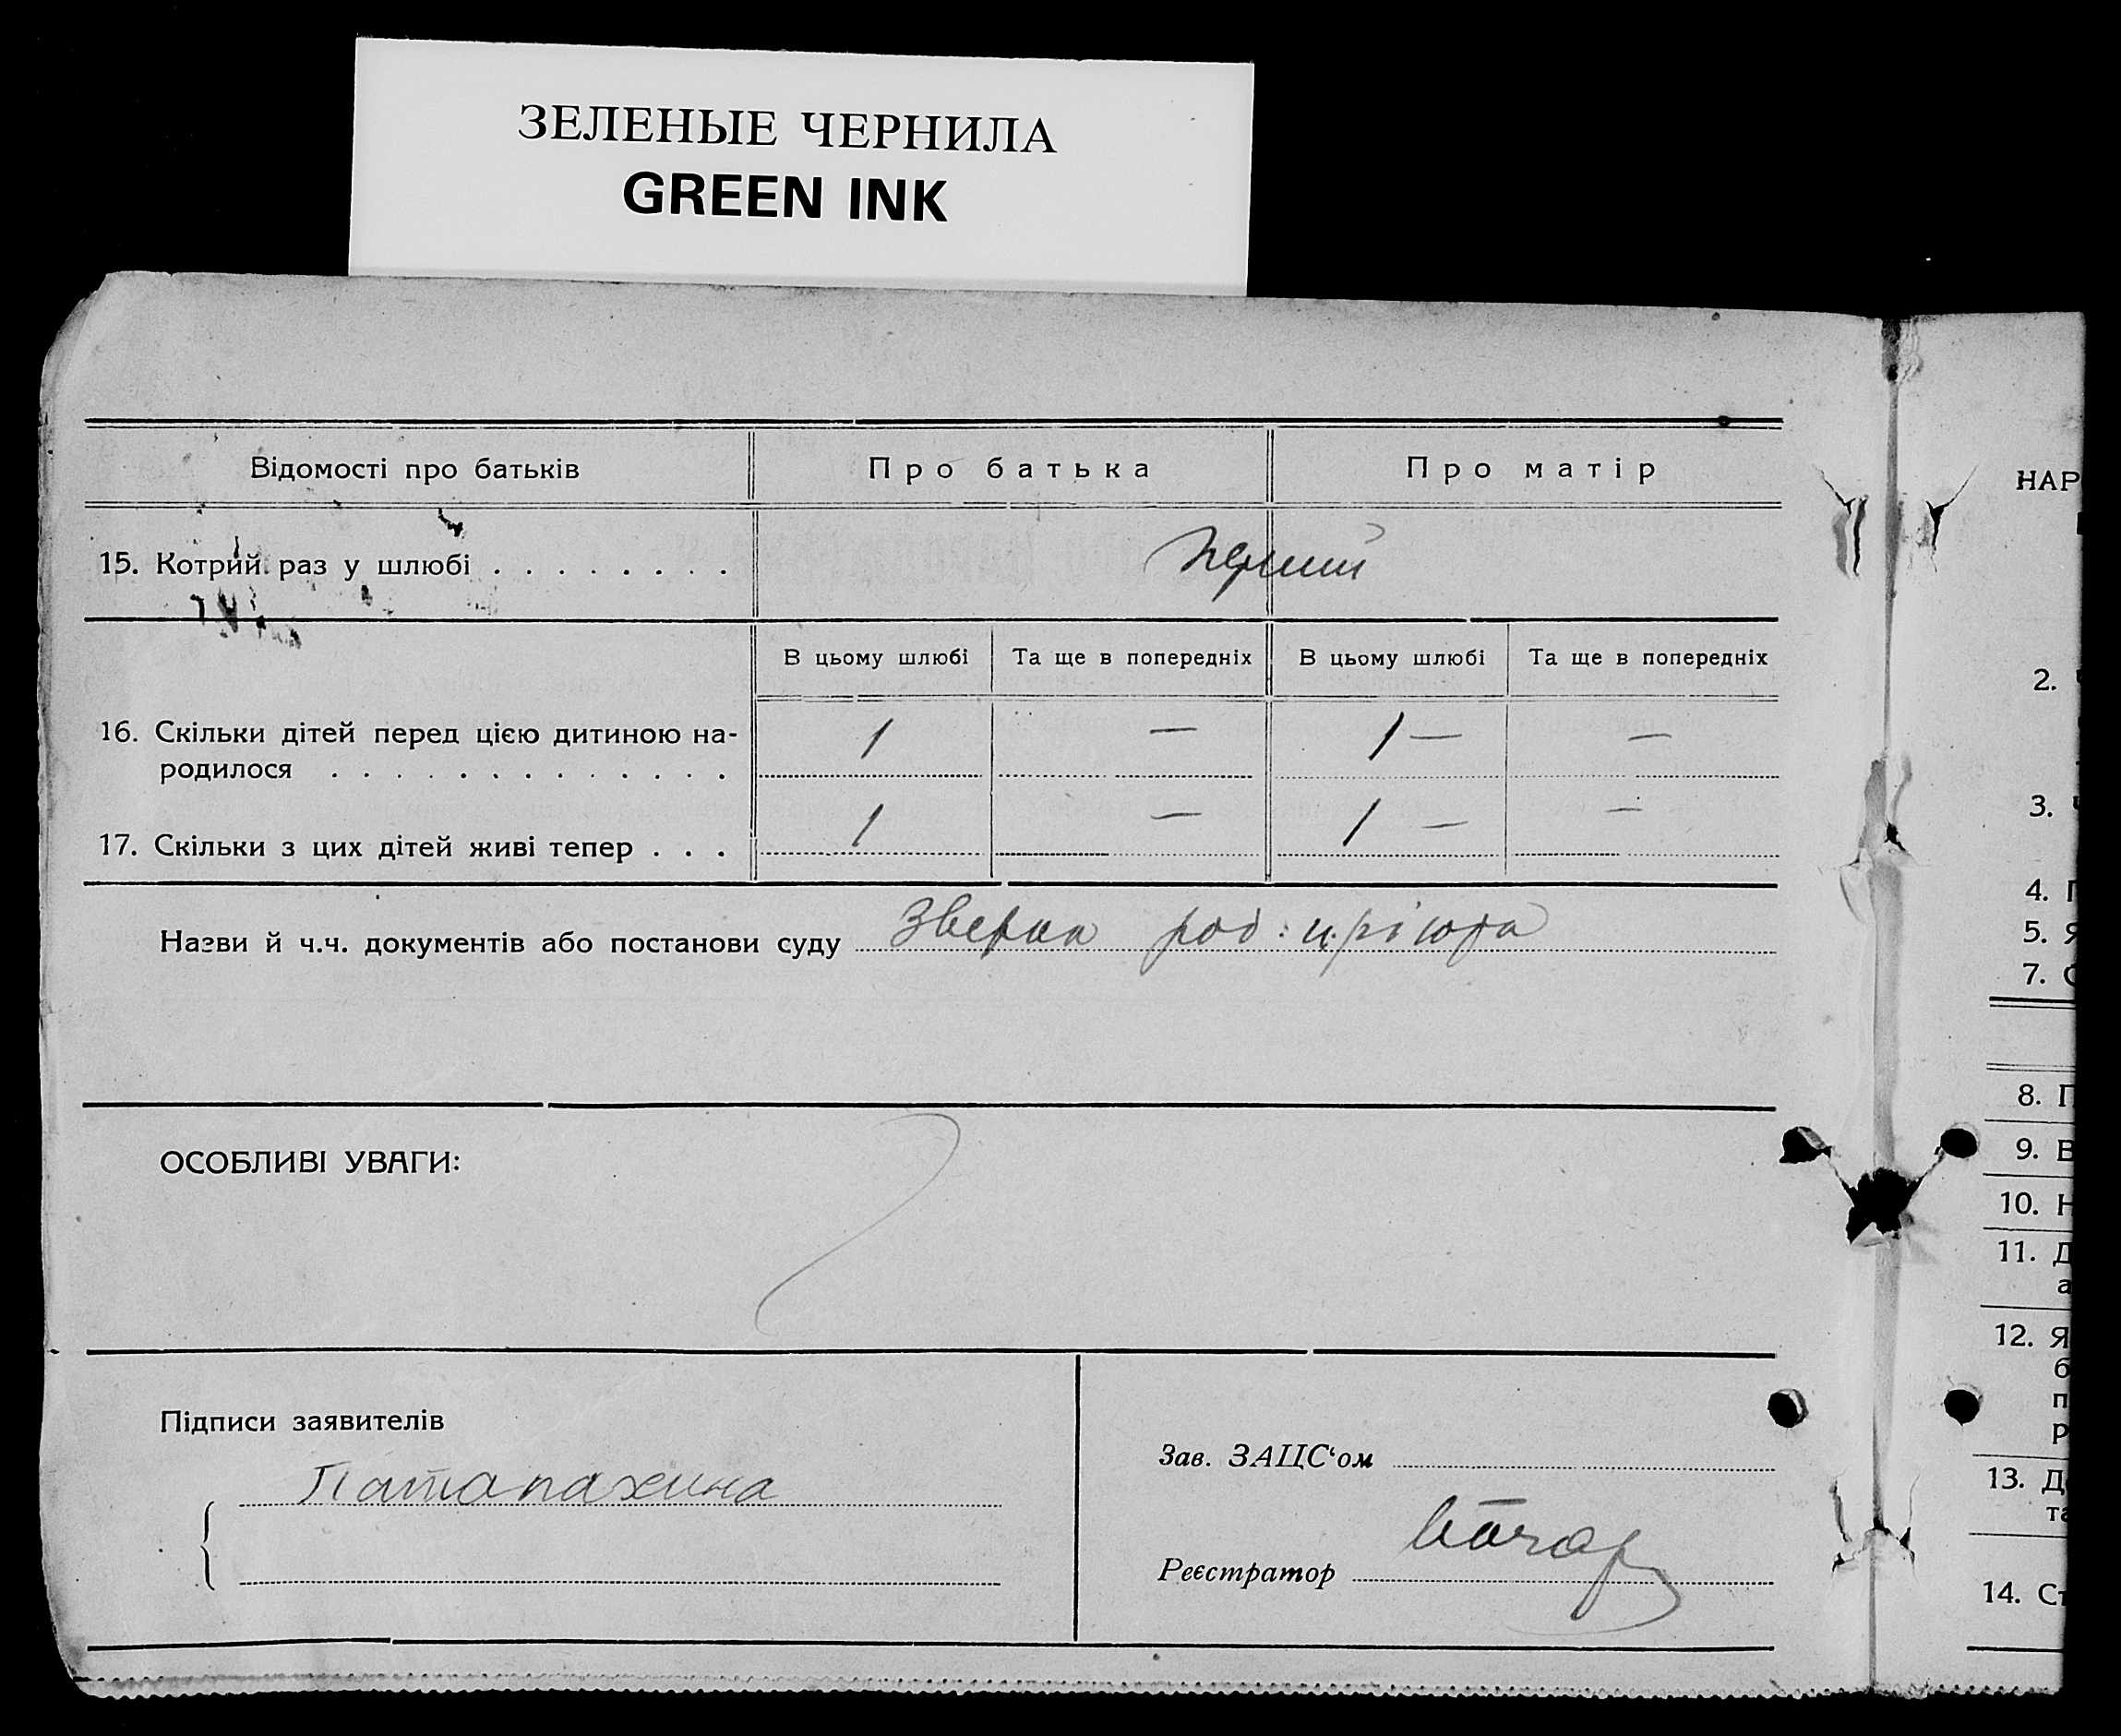 ЗЕЛЕНЫЕ ЧЕРНИЛА
GREEN INK
Відомості про батьків Про батька Про матір
15. Котрий раз у шлюбі . . . . . . . . перший
В цьому шлюбі Та ще в попередніх В цьому шлюбі Та ще в попередніх
16. Скільки дітей перед цією дитиною на- 1 — 1 — —
родилося . . . . . . . . . . . . .
17. Скільки з цих дітей живі тепер . . . 1 — 1 — —
Назви й ч.ч. документів або постанови суду
ОСОБЛИВІ УВАГИ:
Підписи заявителів
Патапахина
Зав. ЗАЦС'ом
Реєстратор
НАР
2.
3.
4.
5.
7.
8.
9.
10.
11.
12.
13.
14.